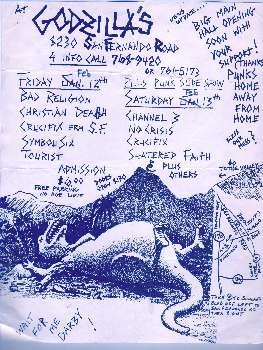 AT GODZILLA'S
8230 SAN FERNANDO ROAD
4 INFO CALL 768-9420
OR 761-5173
FRIDAY JAN. 12th
Feb
BAD RELIGION
CHRISTIAN DEATH
CRUCIFIX FRM S.F.
SYMBOL SIX
TOURIST
PLUS PUNK SIDE SHOW
SATURDAY JAN. 13th
Feb
CHANNEL 3
NO CRISIS
CRUCIFIX
SHATTERED FAITH
& PLUS
OTHERS
BIG MAIN
HALL OPENING
SOON WITH
YOUR
SUPPORT!
THANKS
PUNKS
HOME
AWAY
FROM
HOME
ADMISSION
$6.00
FREE PARKING
NO AGE LIMIT
DOORS
OPEN
WAIT
FOR
MR
DARBY!